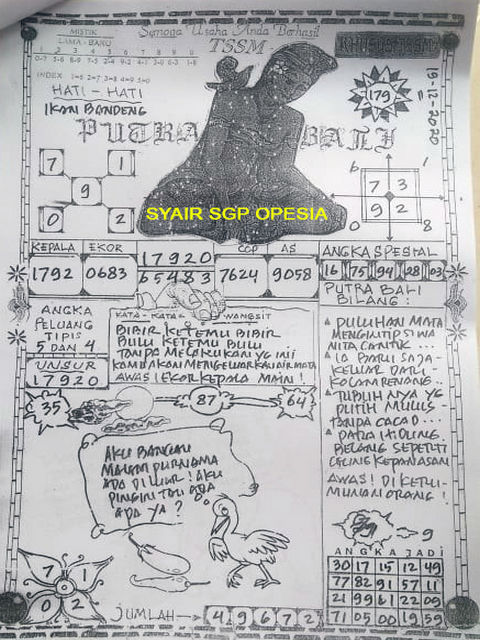 Semoga Usaha Anda Berhasil
TSSM
MISTIK
LAMA - BARU
1 2 3 4 5 6 7 8 9 0
INDEX 1=6 2=7 3=8 4=9 5=0
HATI - HATI
IKAN BANDENG
PUTRA BALI
179
19-12-2020
7 1
9
0 2
6 1
7 3
9 2
0 8
SYAIR SGP OPESIA
KEPALA EKOR
1792 0683
17920
65483
COP AS
7624 9058
ANGKA SPESIAL
16 75 94 28 03
PUTRA BALI
BILANG :
ANGKA
PELUANG
TIPIS
5 DAN 4
UNSUR
17920
KATA - KATA = WANGSIT
BIBIR KETEMU BIBIR
BULU KETEMU BULU
TANPA MELAKUKAN YG INI
KAMU AKAN MENGELUARKAN AIR MATA
AWAS! EKOR KEPALA MAIN!
PULUHAN MATA
MENGINTIP SI WA
NITA CANTIK..
IA BARU SAJA
KELUAR DARI
KOLAM RENANG..
TUBUH NYA YG
PUTIH MULUS
TANPA CACAD...
BELANG SEPERTI
KEPANASAN
AWAS! DI KERU-
MUNAN ORANG!
35
87
64
AKU BANGAU
MALAM PURNAMA
ADA DI LUAR! AKU
PINGIN TAU ADA
APA YA?
7 1
0 2
JUMLAH → 4 9 6 7 2
9
ANGKA JADI
30 17 15 12 49
77 82 91 57 11
21 99 61 22 09
71 05 00 19 59